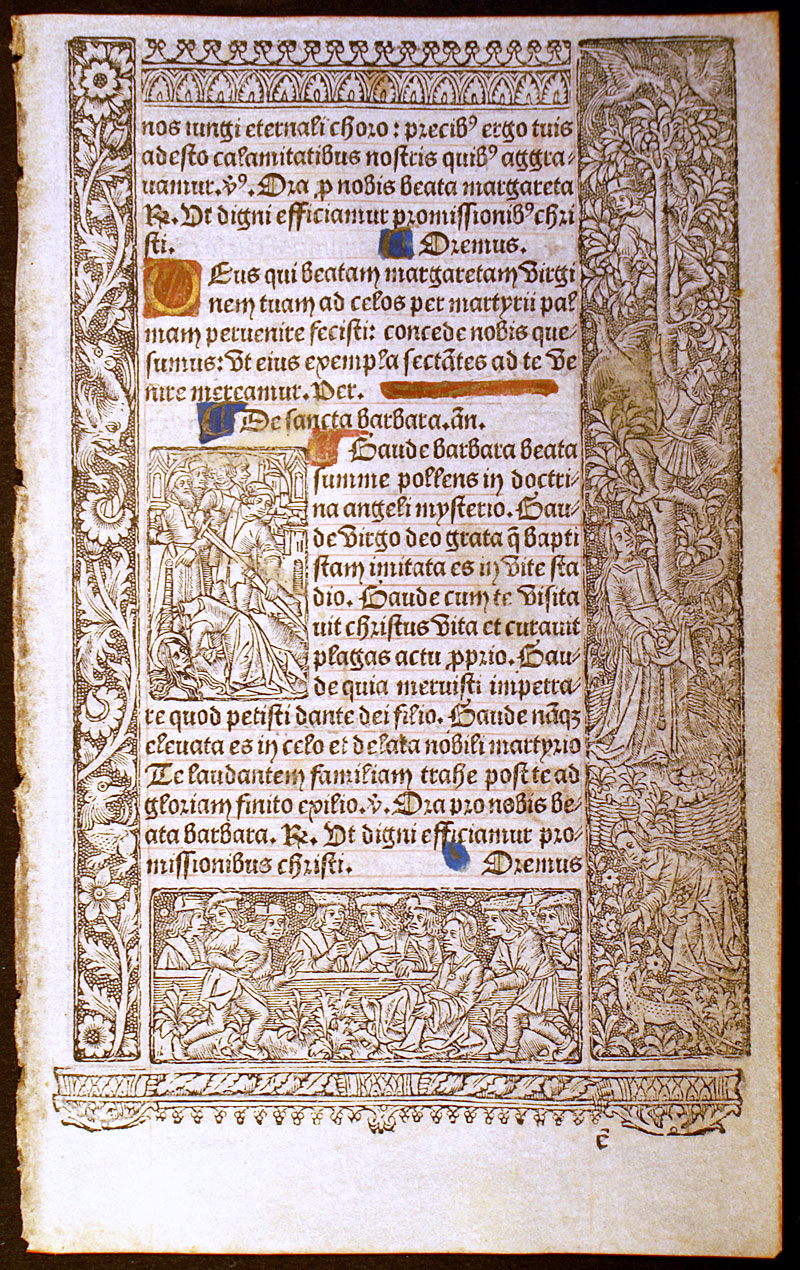 nos iungi eternali choro : precibꝰ ergo tuis
adesto calamitatibus nostris quibꝰ aggra-
uamur. ꝟ. Ora p̄ nobis beata margareta
℞. Vt digni efficiamur promissionibꝰ chri
sti. Oremus.
Eus qui beatam margaretam virgi
nem tuam ad celos per martyrii pal
mam peruenire fecisti: concede nobis que-
sumus: vt eius exempla sectātes ad te ve
nire mereamur. Per.
De sancta barbara. añ.
Gaude barbara beata
summe pollens in doctri-
na angeli mysterio. Gau-
de virgo deo grata q̄ bapti
stam imitata es in vite sta
dio. Gaude cum te visita
uit christus vita et curauit
plagas actu ꝓprio. Gau-
de quia meruisti impetra-
re quod petisti dante dei filio. Gaude nāqꝫ
eleuata es in celo et delata nobili martyrio
Te laudantem familiam trahe post te ad
gloriam finito exilio. ꝟ. Ora pro nobis be-
ata barbara. ℞. Vt digni efficiamur pro-
missionibus christi. Oremus